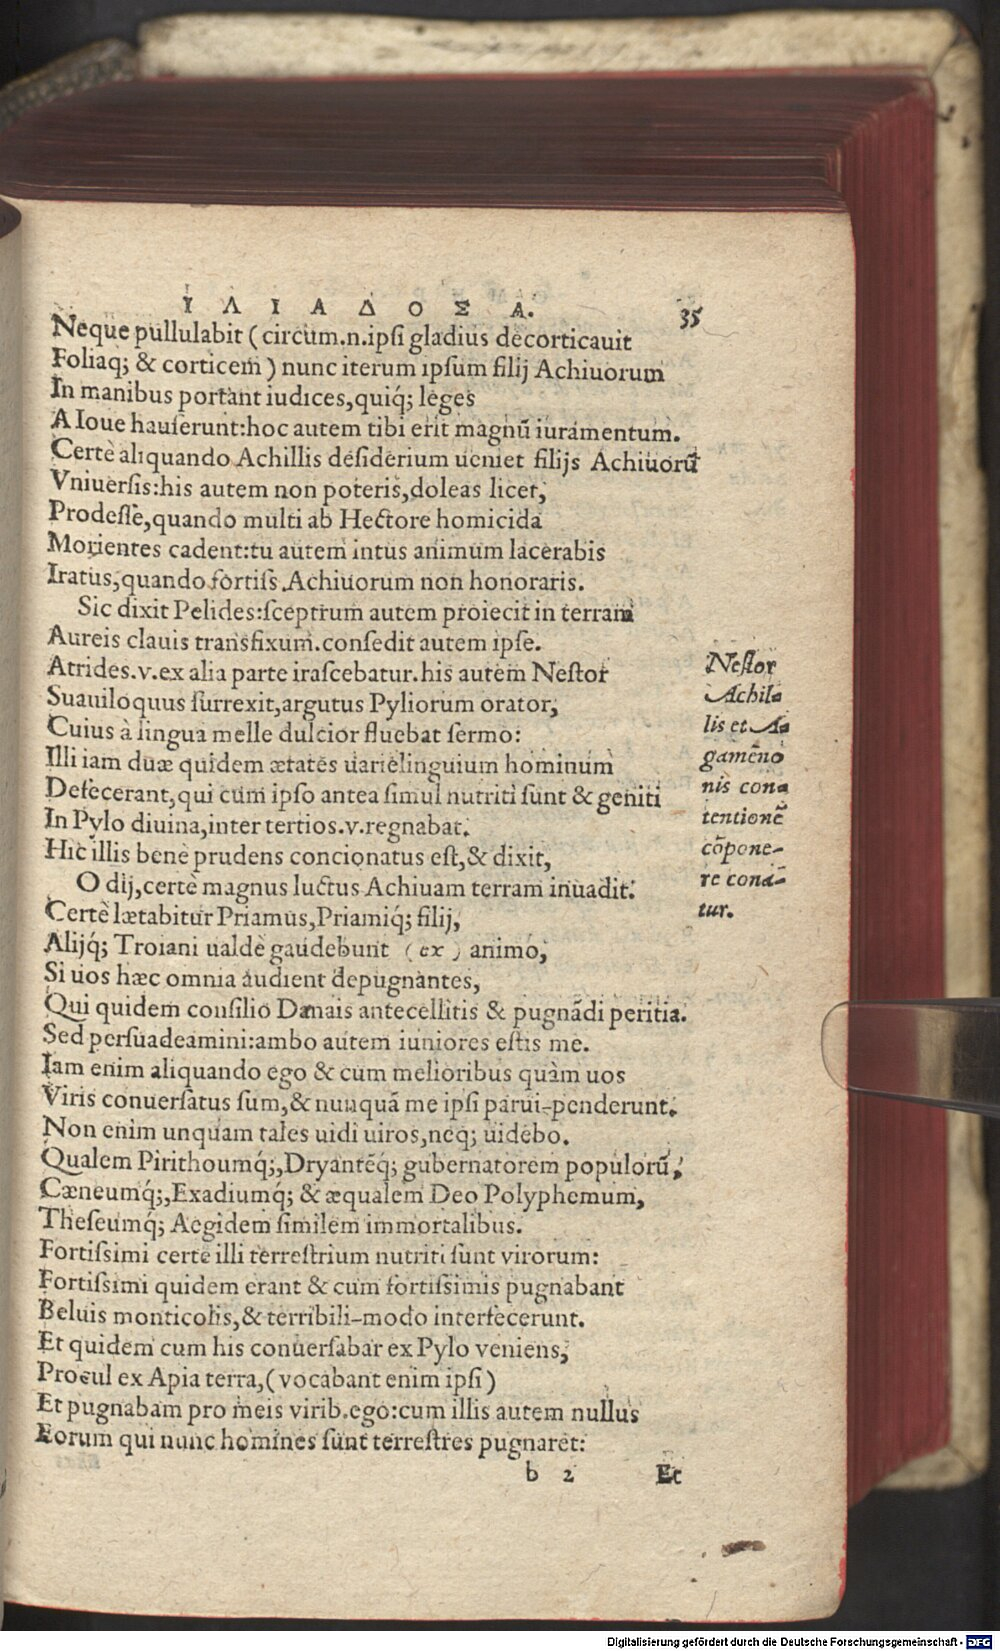 ΙΛΙΑΔΟΣ Α. 35
Neque pullulabit (circum.n.ipſi gladius decorticauit
Foliaq; & corticem) nunc iterum ipſum filij Achiuorum
In manibus portant iudices,quiq́; leges
A Ioue hauſerunt:hoc autem tibi erit magnũ iuramentum.
Certè aliquando Achillis deſiderium ueniet filijs Achiuorũ
Vniuerſis:his autem non poteris,doleas licet,
Prodeſſe,quando multi ab Hectore homicida
Morientes cadent:tu autem intus animum lacerabis
Iratus,quando fortiſs.Achiuorum non honoraris.
Sic dixit Pelides:ſceptrum autem proiecit in terram
Aureis clauis transfixum.conſedit autem ipſe.
Atrides.v.ex alia parte iraſcebatur.his autem Neſtor
Suauiloquus ſurrexit,argutus Pyliorum orator,
Cuius à lingua melle dulcior fluebat ſermo:
Illi iam duæ quidem ætates uarielinguium hominum
Defecerant,qui cum ipſo antea ſimul nutriti ſunt & geniti
In Pylo diuina,inter tertios.v.regnabat.
Hic illis benè prudens concionatus eſt,& dixit,
O dij,certè magnus luctus Achiuam terram inuadit.
Certè lætabitur Priamus,Priamiq́; filij,
Alijq́; Troiani ualdè gaudebunt (ex) animo,
Si uos hæc omnia audient depugnantes,
Qui quidem conſilio Danais antecellitis & pugnãdi peritia.
Sed perſuadeamini:ambo autem iuniores eſtis me.
Iam enim aliquando ego & cum melioribus quàm uos
Viris conuerſatus ſum,& nunquã me ipſi parui-penderunt.
Non enim unquam tales uidi uiros,neq; uidebo.
Qualem Pirithoumq́;,Dryantẽq; gubernatorem populorũ,
Cæneumq́;,Exadiumq́; & æqualem Deo Polyphemum,
Theſeumq́; Aegidem ſimilem immortalibus.
Fortiſsimi certè illi terreſtrium nutriti ſunt virorum:
Fortiſsimi quidem erant & cum fortiſsimis pugnabant
Beluis monticolis,& terribili-modo interfecerunt.
Et quidem cum his conuerſabar ex Pylo veniens,
Procul ex Apia terra,(vocabant enim ipſi)
Et pugnabam pro meis virib.ego:cum illis autem nullus
Eorum qui nunc homines ſunt terreſtres pugnaret:
b 2 Et
Neſtor
Achil-
lis et A-
gamẽnõ
nis con-
tentionẽ
cõpone-
re cona-
tur.
Digitalisierung gefördert durch die Deutsche Forschungsgemeinschaft - DFG